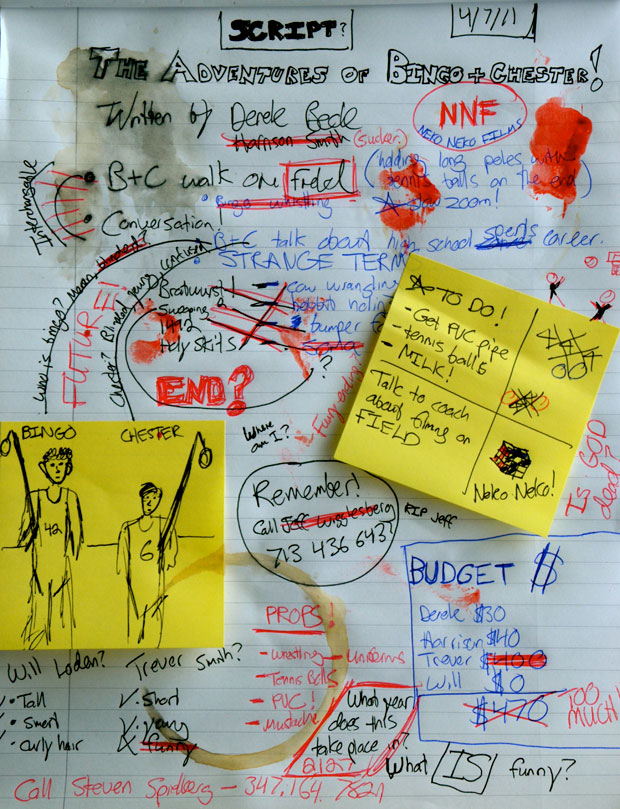 SCRIPT?
4/7/11
THE ADVENTURES OF BINGO + CHESTER!
Written by Derek Beck
Harrison Smith (sucker)
NNF
NEKO NEKO FILMS
Interchangable
B+C walk on field
(holding long poles with
tennis balls on the end)
Bingo whistling
slow zoom!
Conversation!
B+C talk about high school sports career.
STRANGE TERM
What is bingo?
Chester?
FUTURE!
Bratwurst!
1992
Holy Skits
Cow wrangling
bumper
END?
?
Funny ending
Where am I?
TO DO!
- Get PVC pipe
- tennis balls
- MILK!
Talk to coach
about filming on
FIELD
Neko Neko!
Is GOD dead?
BINGO
CHESTER
42
6
Remember!
Call Jeff Wigglesberg
713 436 6437
RIP Jeff
BUDGET $
Derek $30
Harrison $40
Trever $400
Will $0
$470
TOO MUCH!
PROBS!
- wrestling uniforms
- Tennis Balls
- PVC!
- Mustache
Will Loden?
• Tall
• Smart
• curly hair
Trever Smith?
• Short
• Funny
What year
does this
take place in?
2127
What IS funny?
Call Steven Spielberg - 347.164.7621